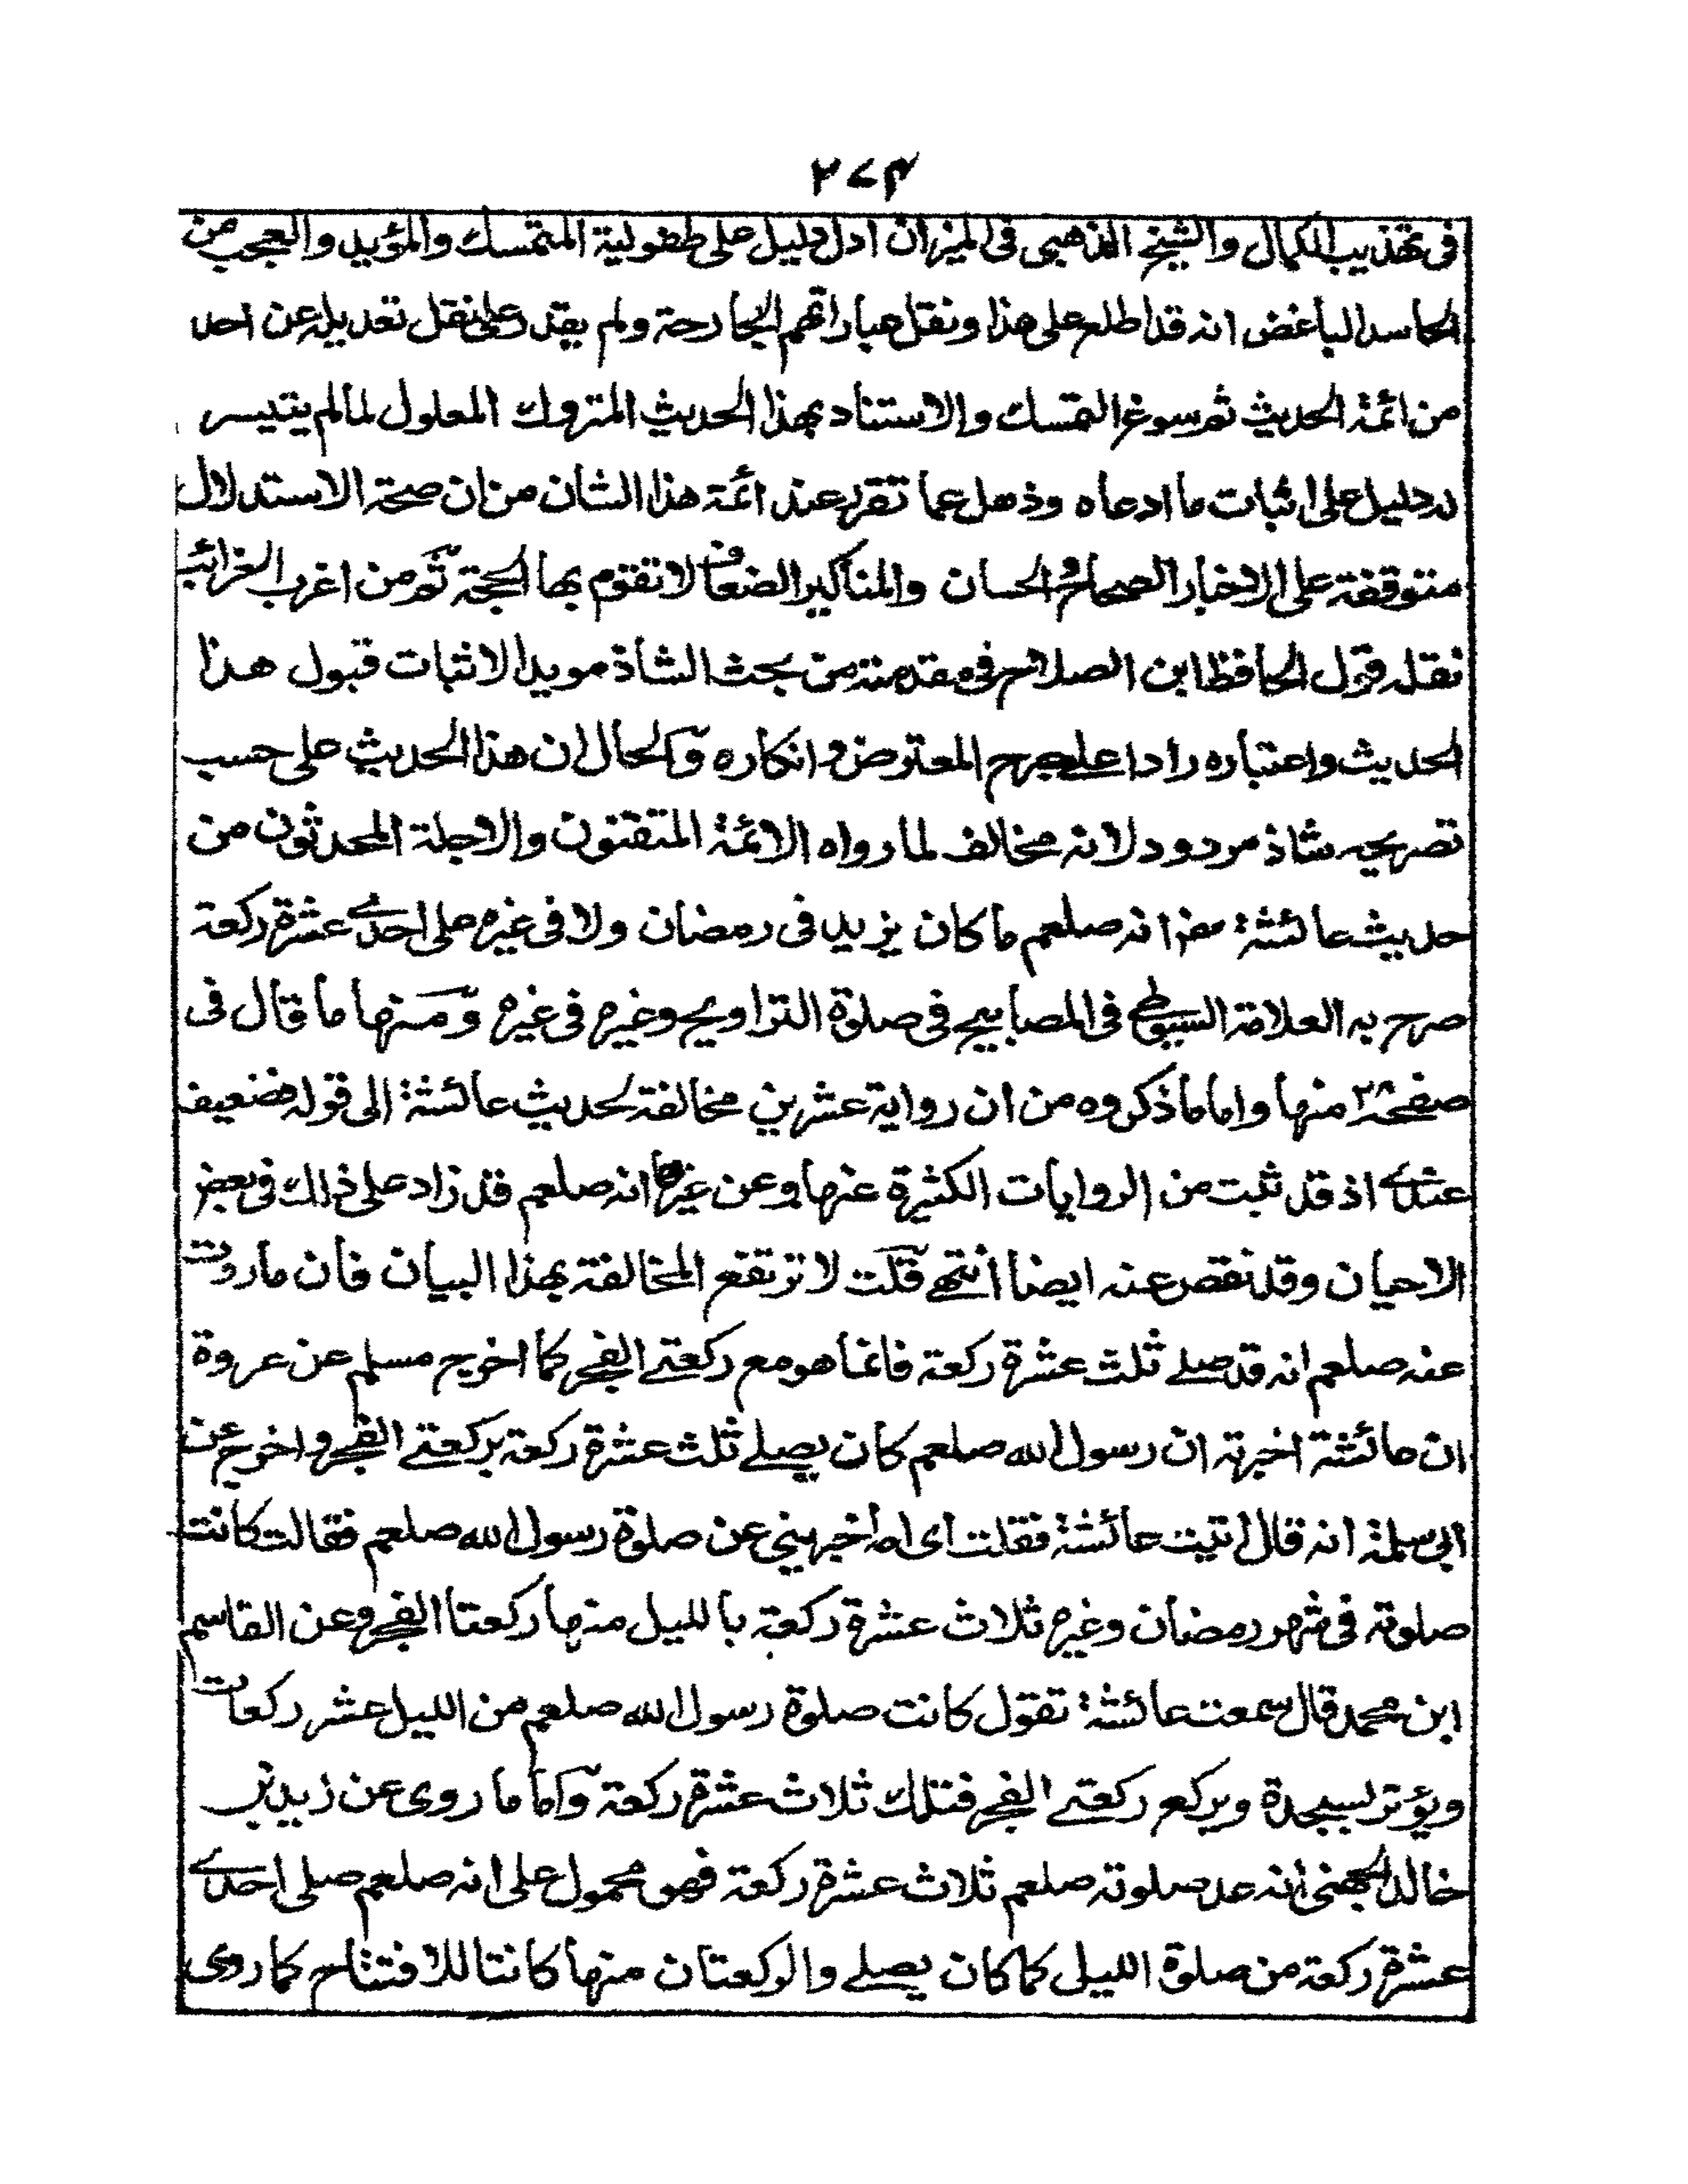 ٢٧٤
فى تهذيب الكمال والشيخ الذهبى فى الميزان ادل دليل على طفولية المتمسك والمؤيد والعجب من
الحاسد الباغض انه قد اطلع على هذا ونقل عباراتهم الجارحة ولم يقدر على نقل تعديله عن احد
من ائمة الحديث ثم سوغ التمسك والاستناد بهذا الحديث المتروك المعلول لما لم يتيسر
له دليل على اثبات ما ادعاه وذهل عما تقرر عند ائمة هذا الشان من ان صحة الاستدلال
متوقفة على الاخبار الصحاح والحسان والمناكير الضعاف لا تقوم بها الحجة ثم من اغرب الغرائب
نقله قول الحافظ ابن الصلاح فى مقدمته من بحث الشاذ مويدا لاثبات قبول هذا
الحديث واعتباره رادا على جرح المعترض وانكاره والحال ان هذا الحديث على حسب
تصريحه شاذ مردود لانه مخالف لما رواه الائمة المتقنون والاجلة المحدثون من
حديث عائشة رض انه صلعم ما كان يزيد فى رمضان ولا فى غيره على احدى عشرة ركعة
صرح به العلامة السيوطى فى المصابيح فى صلوة التراويح وغيره فى غيره ومنها ما قال فى
صفحة ٢٨ منها واما ما ذكروه من ان رواية عشرين مخالفة لحديث عائشة الى قوله فضعيف
عندى اذ قد ثبت من الروايات الكثيرة عنها وعن غيرها انه صلعم قد زاد على ذلك فى بعض
الاحيان وقد نقص عنه ايضا انتهى قلت لا ترتفع المخالفة بهذا البيان فان ما روت
عنه صلعم انه قد صلے ثلث عشرة ركعة فانما هو مع ركعتے الفجر كما اخرج مسلم عن عروة
ان عائشة اخبرته ان رسول الله صلعم كان يصلے ثلث عشرة ركعة بركعتے الفجر واخرج عن
ابى سلمة انه قال اتيت عائشة فقلت اى امه اخبرينى عن صلوة رسول الله صلعم فقالت كانت
صلوته فى شهر رمضان وغيره ثلاث عشرة ركعة بالليل منها ركعتا الفجر وعن القاسم
ابن محمد قال سمعت عائشة تقول كانت صلوة رسول الله صلعم من الليل عشر ركعات
ويؤتر بسجدة ويركع ركعتے الفجر فتلك ثلاث عشرة ركعة واما ما روى عن زيد بن
خالد الجهنى انه عد صلوته صلعم ثلاث عشرة ركعة فهو محمول على انه صلعم صلى احدى
عشرة ركعة من صلوة الليل كما كان يصلے والركعتان منها كانتا للافتتاح كما روى